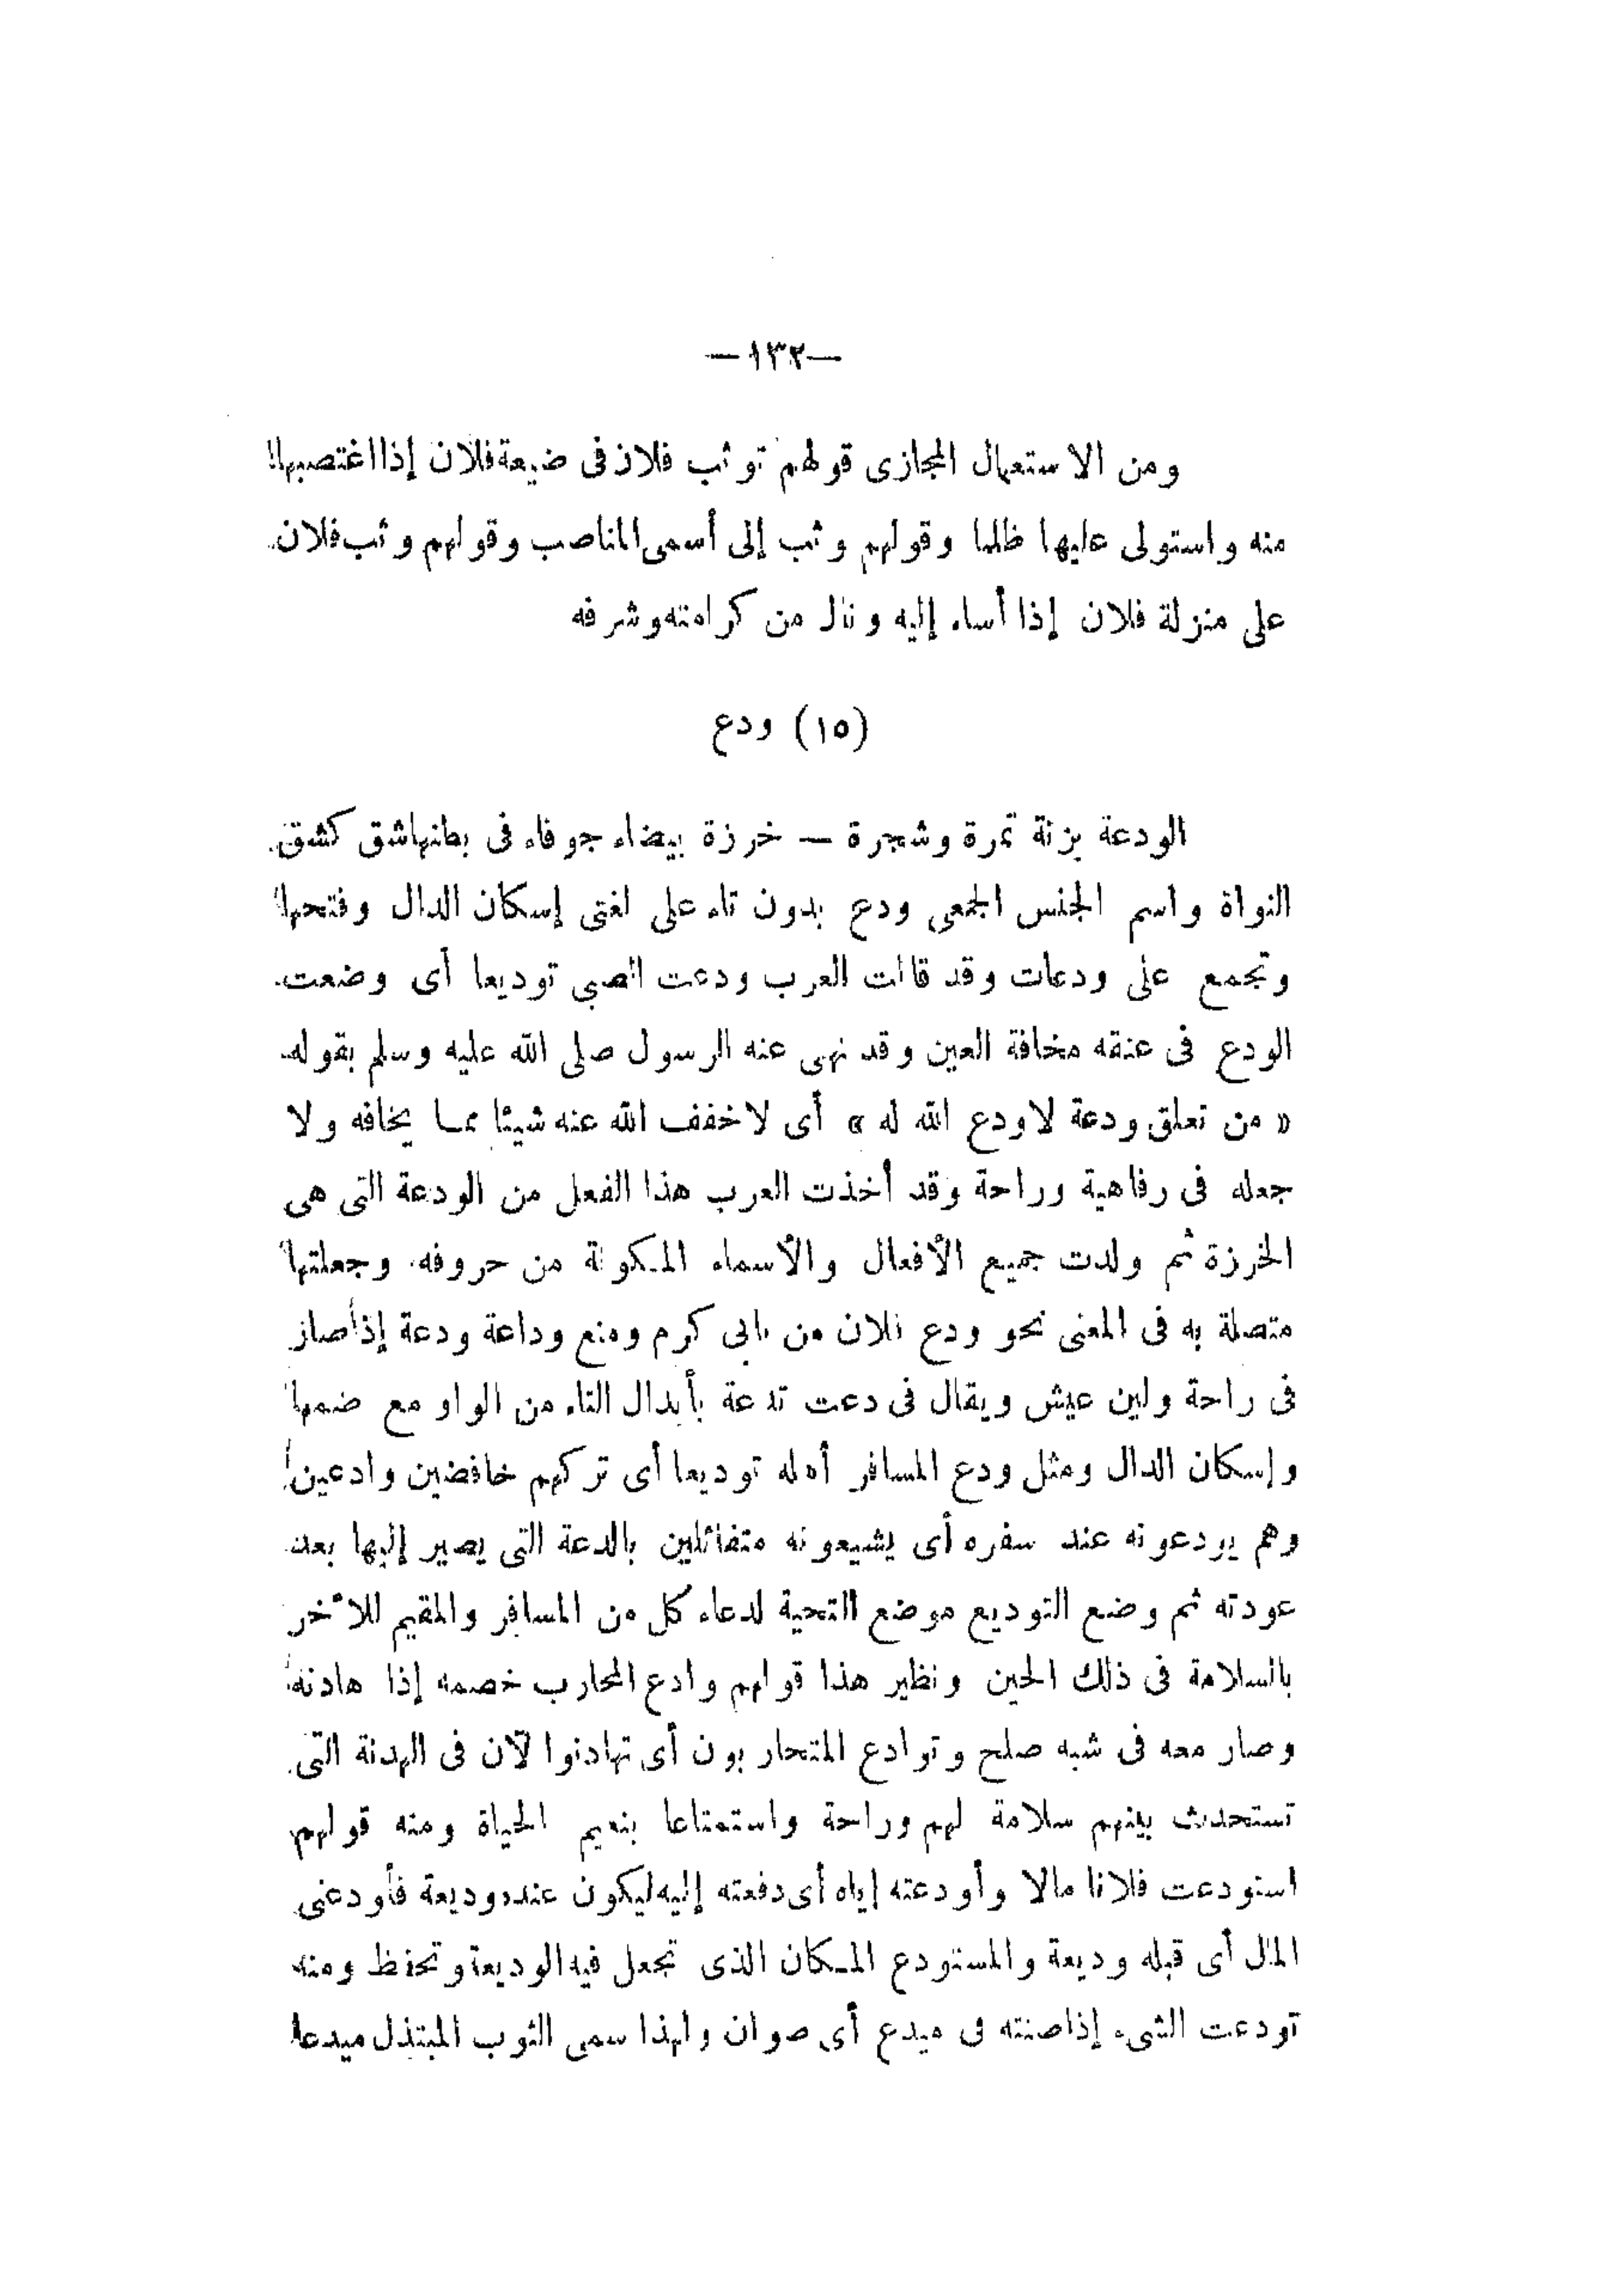 —١٣٢—
ومن الاستعمال المجازى قولهم توثب فلان فى ضيعة فلان إذا اغتصبها
منه واستولى عليها ظلما وقولهم وثب إلى أسمى المناصب وقولهم وثب فلان
على منزلة فلان إذا أساء إليه ونال من كرامته وشرفه
(١٥) ودع
الودعة بزنة تمرة وشجرة — خرزة بيضاء جوفاء فى بطنها شق كشق
النواة واسم الجنس الجمعى ودع بدون تاء على لغتى إسكان الدال وفتحها
وتجمع على ودعات وقد قالت العرب ودعت الصبى توديعا أى وضعت
الودع فى عنقه مخافة العين وقد نهى عنه الرسول صلى الله عليه وسلم بقوله
« من تعلق ودعة لاودع الله له » أى لاخفف الله عنه شيئا مما يخافه ولا
جعله فى رفاهية وراحة وقد أخذت العرب هذا الفعل من الودعة التى هى
الخرزة ثم ولدت جميع الأفعال والأسماء المكونة من حروفه وجعلتها
متصلة به فى المعنى نحو ودع فلان من بابى كرم ومنع وداعة ودعة إذا صار
فى راحة ولين عيش ويقال فى دعت تدعة بأبدال التاء من الواو مع ضمها
وإسكان الدال ومثل ودع المسافر أهله توديعا أى تركهم خافضين وادعين
وهم يودعونه عند سفره أى يشيعونه متفائلين بالدعة التى يصير إليها بعد
عودته ثم وضع التوديع موضع التحية لدعاء كل من المسافر والمقيم للآخر
بالسلامة فى ذلك الحين ونظير هذا قولهم وادع المحارب خصمه إذا هادنه
وصار معه فى شبه صلح وتوادع المتحاربون أى تهادنوا لآن فى الهدنة التى
تستحدث بينهم سلامة لهم وراحة واستمتاعا بنعيم الحياة ومنه قولهم
استودعت فلانا مالا وأودعته إياه أى دفعته إليه ليكون عنده وديعة فأودعنى
المال أى قبله وديعة والمستودع المكان الذى تجعل فيه الوديعة وتحفظ ومنه
تودعت الشىء إذا صنته فى ميدع أى صوان ولهذا سمى الثوب المبتذل ميدعا